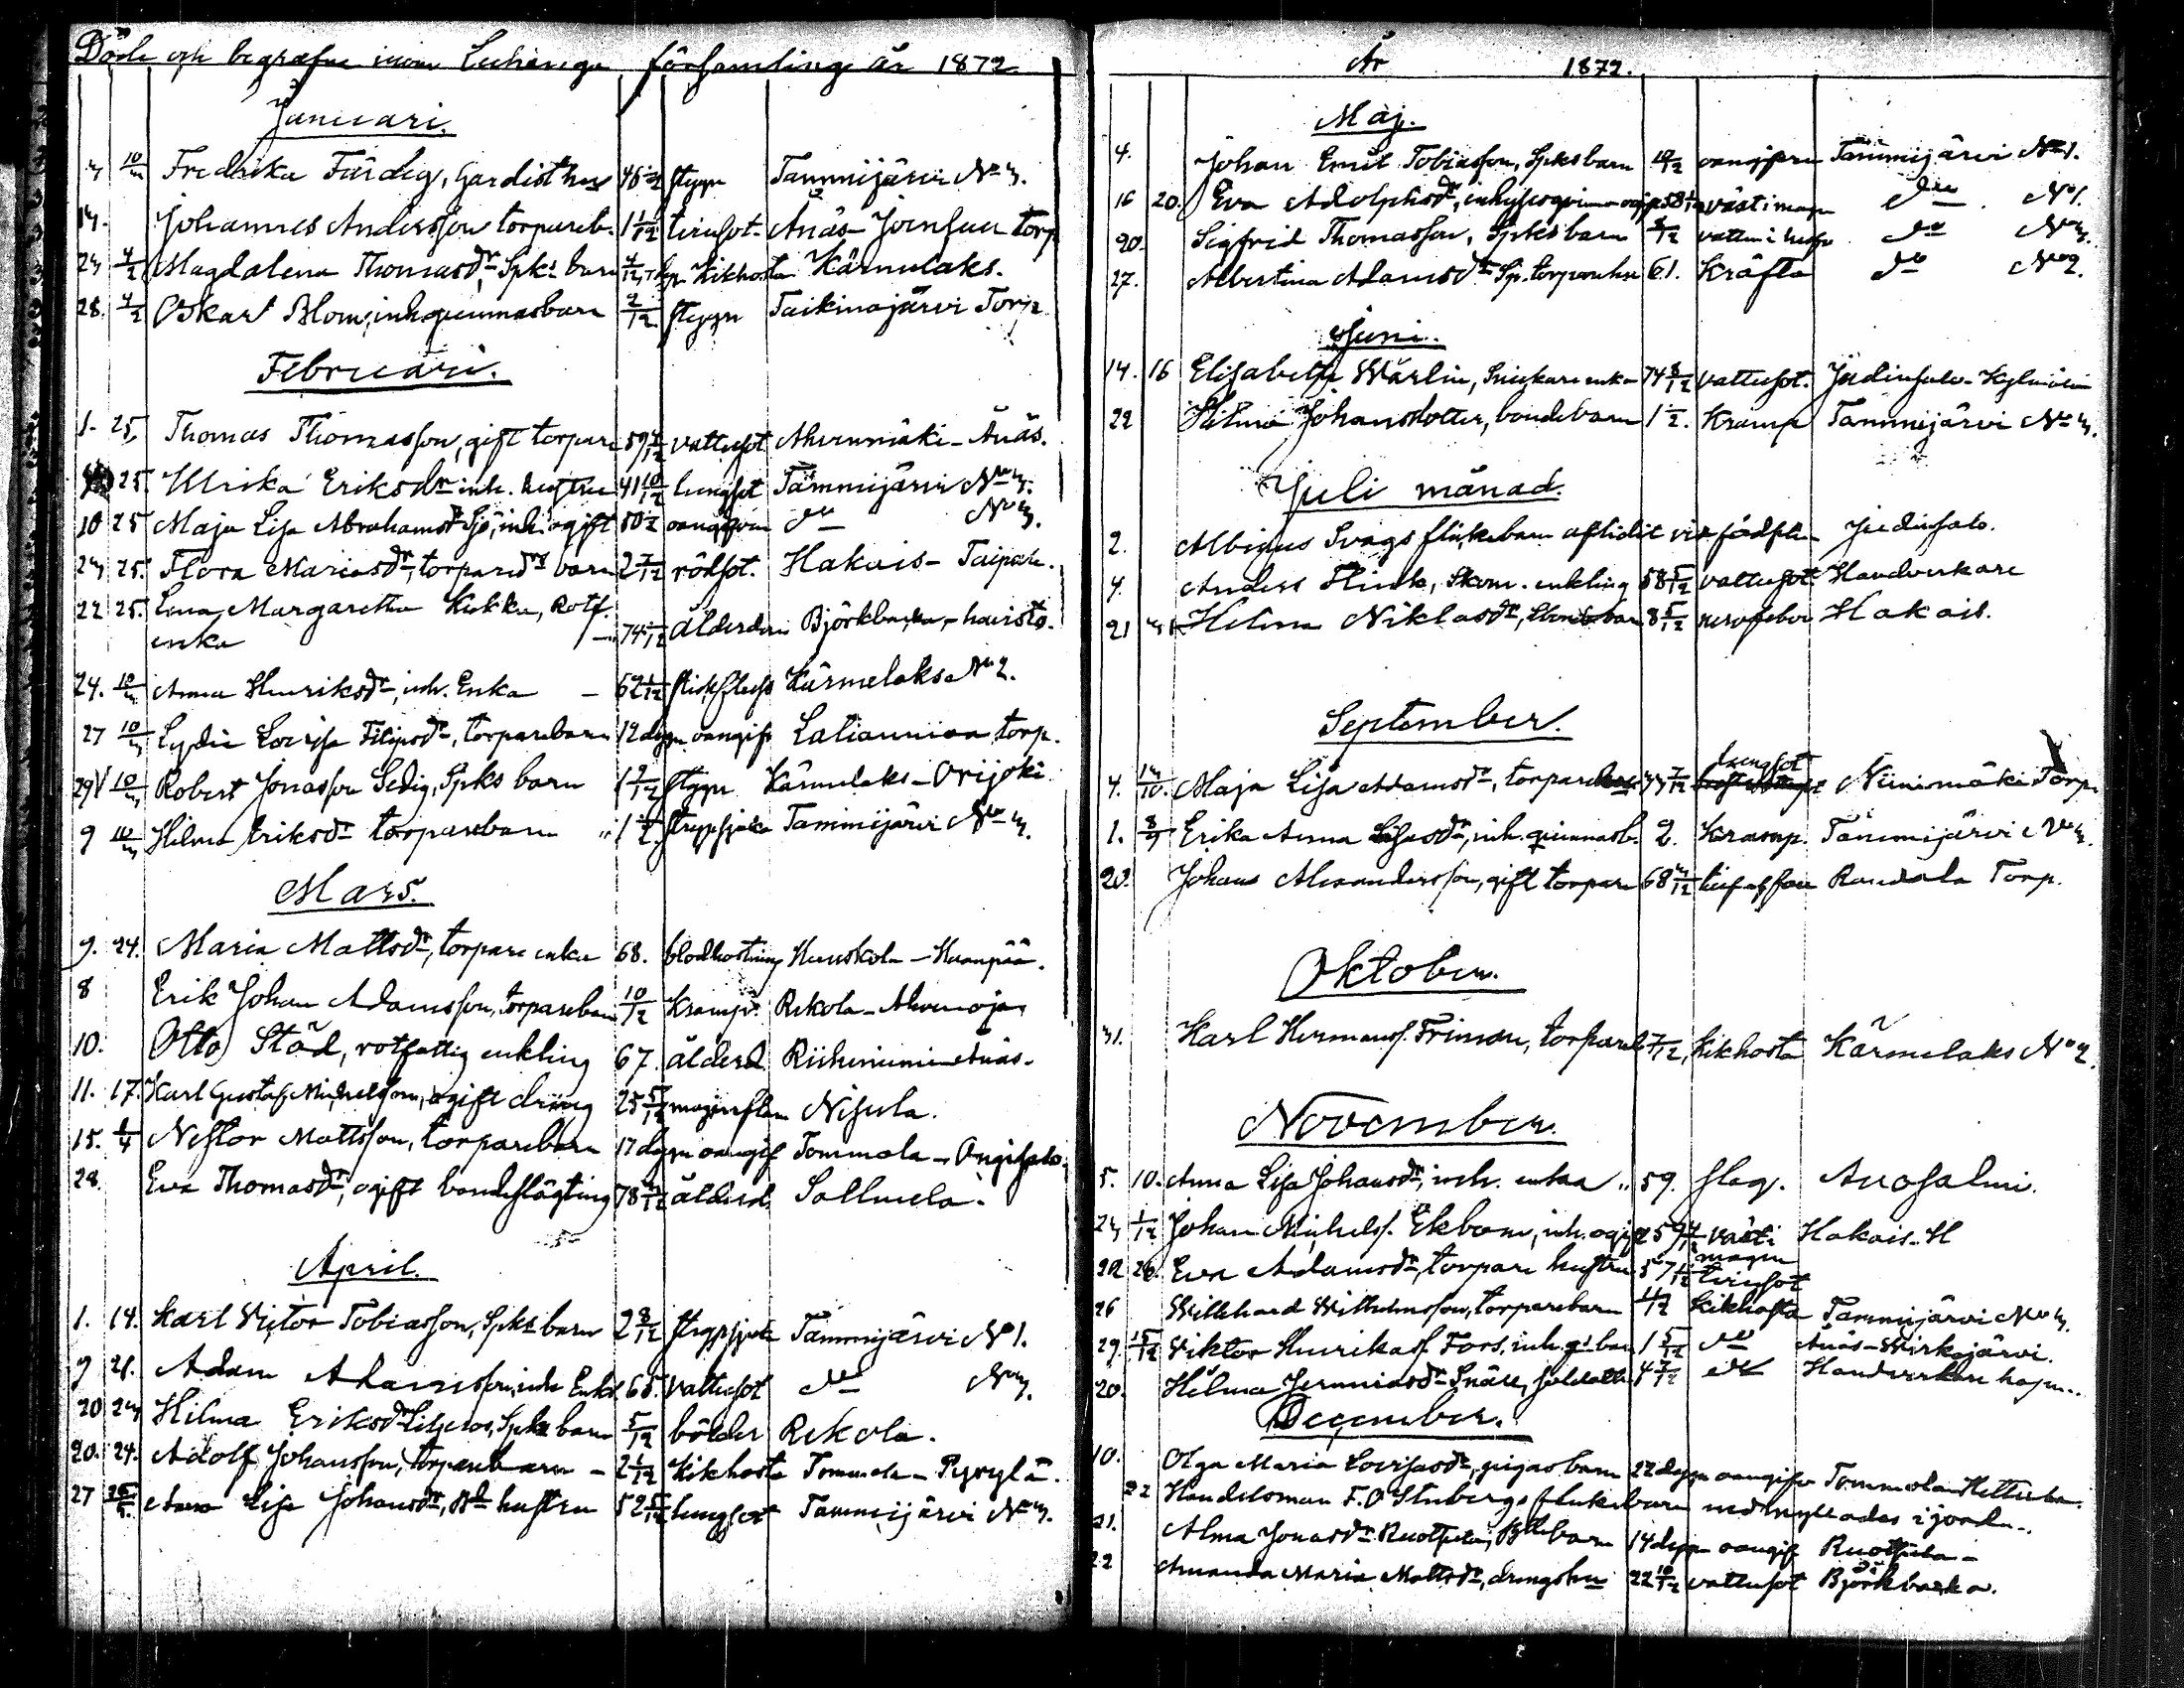 Döde och begrafne inom Luhanga församling år 1872
Januari.
3 10/3 Fredrika Färdig, Gardist hu 46 stygn Tammijärvi No 3.
14. Johannes Andersson torpareb. 1 1/12 trinsot Anäs- torp
23 4/2 Magdalena Thomasdr, Spks barn 4/12 kikhosta Kärmelaks.
28. 4/2 Oskar Blom, inh. qvinnasbarn 2/12 stygn Taikinajärvi Torp
Februari.
1. 25. Thomas Thomasson, gift torpare 59 vattusot Ahvenmäki - Anäs.
25. Ulrika Eriksdr inh. hustru 41 10/12 lungsot Tammijärvi No 3.
10 25 Maja Lisa Abrahamsdr Sjö, inh. ogift 50 oangifven do No 3.
23 25. Flora Mariasdr, torparedrs barn 2 7/12 rödsot. Hakais - Taipale.
22 25. Lena Margaretha Kukka, Rotf. enka 74 ålderdom Björkbacka - haristo.
24. 10/3 Anna Henriksdr, inh. Enka - 62 1/12 Kärmelaks No 2.
27 10/3 Lydia Lovisa Filipsdr, torparebarn 12 dygn oangif torp.
29 10/3 Robert Jonasson Sedig, Spks barn 1 9/12 stygn Kärmelaks - Orijoki
9 10/3 Hilma Eriksdr torparebarn 1 strypsjuka Tammijärvi No 3.
Mars.
9. 24. Maria Mattsdr, torpare enka 68. blodhostning Huuskola - Haanpää.
8 Erik Johan Adamsson, torparebarn 10/12 Kramp. Rekola - Ahvenoja
10. Otto Städ, rotfattig enkling 67. ålderd Riihiniemi Anäs.
11. 17. Karl Gustaf Michelsson, ogift dräng 25 5/12 Nisula.
15. 1/4 Nestor Mattsson, torparebarn 17 dygn oangif Tommola - Ongisalo.
28. Eva Thomasdr, ogift bondeslägting 78 ålderd. Sallmela.
April.
1. 14. Karl Victor Tobiasson, Spks barn 2 8/12 strypsjuka Tammijärvi No 1.
9 21. Adam Adamsson, inh Enkl. 65. vattusot do No 3.
20 23 Hilma Eriksdr Liljeros, Spks barn 5/12 bölder Rekola.
20. 24. Adolf Johansson, torparebarn - 2 1/12 Kikhosta Tommola - Pyrylä.
27 Anna Lisa Johansdr, Bd hustru 52 5/12 lungsot Tammijärvi No 3.
År 1872.
Maj.
4. Johan Emil Tobiasson, Spks barn 10/12 oangifven Tammijärvi No 1.
16 20. Eva Adolphsdr, inhyses qvinna ogift 58 värk i magen do No 1.
20. Sigfrid Thomasson, Spks barn 8/12 vatten i hufv do No 3.
27. Albertina Adamsdr Sp. torpare hu 61. Kräfta do No 2.
Juni.
14. 16 Elisabeth Wärlin, Snickare enka 74 8/12 vattusot. Judinsalo -
22 Hilma Johansdotter, bondebarn 1 1/2. Kramp Tammijärvi No 3.
Juli månad.
2. Albinus Svags flickebarn aflidit vid födseln Judinsalo.
4. Anders Flink, Skom. enkling 58 5/12 vattusot Handverkare
21 Helena Niklasdr, barn 8 5/12 nervfeber Hakais.
September.
4. 14/10. Maja Lisa Adamsdr, torpare 7/12 lungsot Niinimäki Torp
1. 8/9 Erika Anna Lisasdr, inh. qvinnasb. 2. Kramp. Tammijärvi No 3.
20. Johans Alexandersson, gift torpare 68 3/12 Randala Torp.
Oktober.
31. Karl Hermanss. Friman, torpareb 7/12, kikhosta Kärmelaks No 2.
November.
5. 10. Anna Lisa Johansdr, inh. enka 59. slag. Avosalmi.
23 1/12 Johan Michelss. Ekbom, inh. ogift 59 värk i magen Hakais. H
22 26. Eva Adamsdr, torpare hustru 57 1/12 trinsot
26 Willehard Wilhelmsson, torparebarn 4/12 kikhosta Tammijärvi No 3.
29 15/12 Viktor Henrikas. Fors, inh. qs barn 1 5/12 do Anäs - Wirkajärvi.
20. Hilma Jeremiasdr Snäll, soldatb 4 7/12 do Handverkare
December.
10. Olga Maria Lovisasdr, pigas barn 22 dygn oangifven Tommola
22 Handelsman F. O Stenbergs flickebarn nedmyllades i jorden.
21. Alma Jonasdr Ruotsula, Bdebarn 14 dygn oangif Ruotsula -
22 Amanda Maria Mattsdr, drengshu 22 10/12 vattusot Björkbacka.